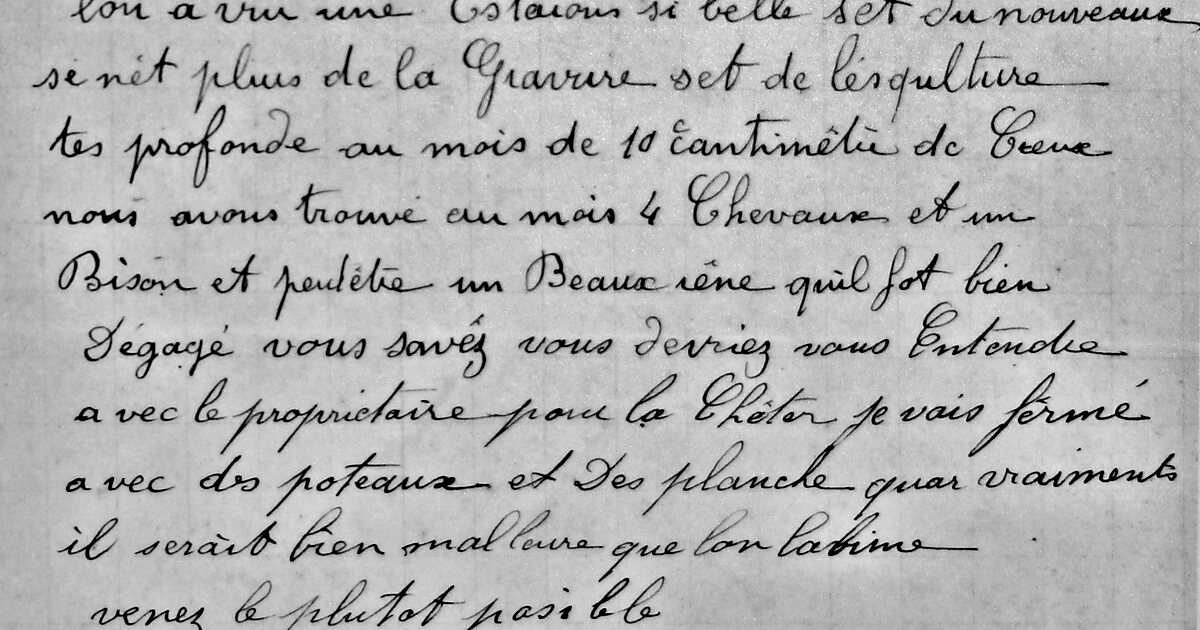 lon a vru une Estaions si belle set du nouveaux
se nèt pluus de la Gravure set de lésqulture
tes profonde au mois de 10 cantimêtre de Creux
nous avons trouvé au mois 4 Chevaux et un
Bison et peutêtre un Beaux rêne quil fot bien
Dégagé vous savéz vous devriez vous Entendre
avec le propriétaire pour la Chêter je vais férmé
avec des poteaux et Des planche quar vraiments
il serait bien malleure que lon labime
venez le plutot posible